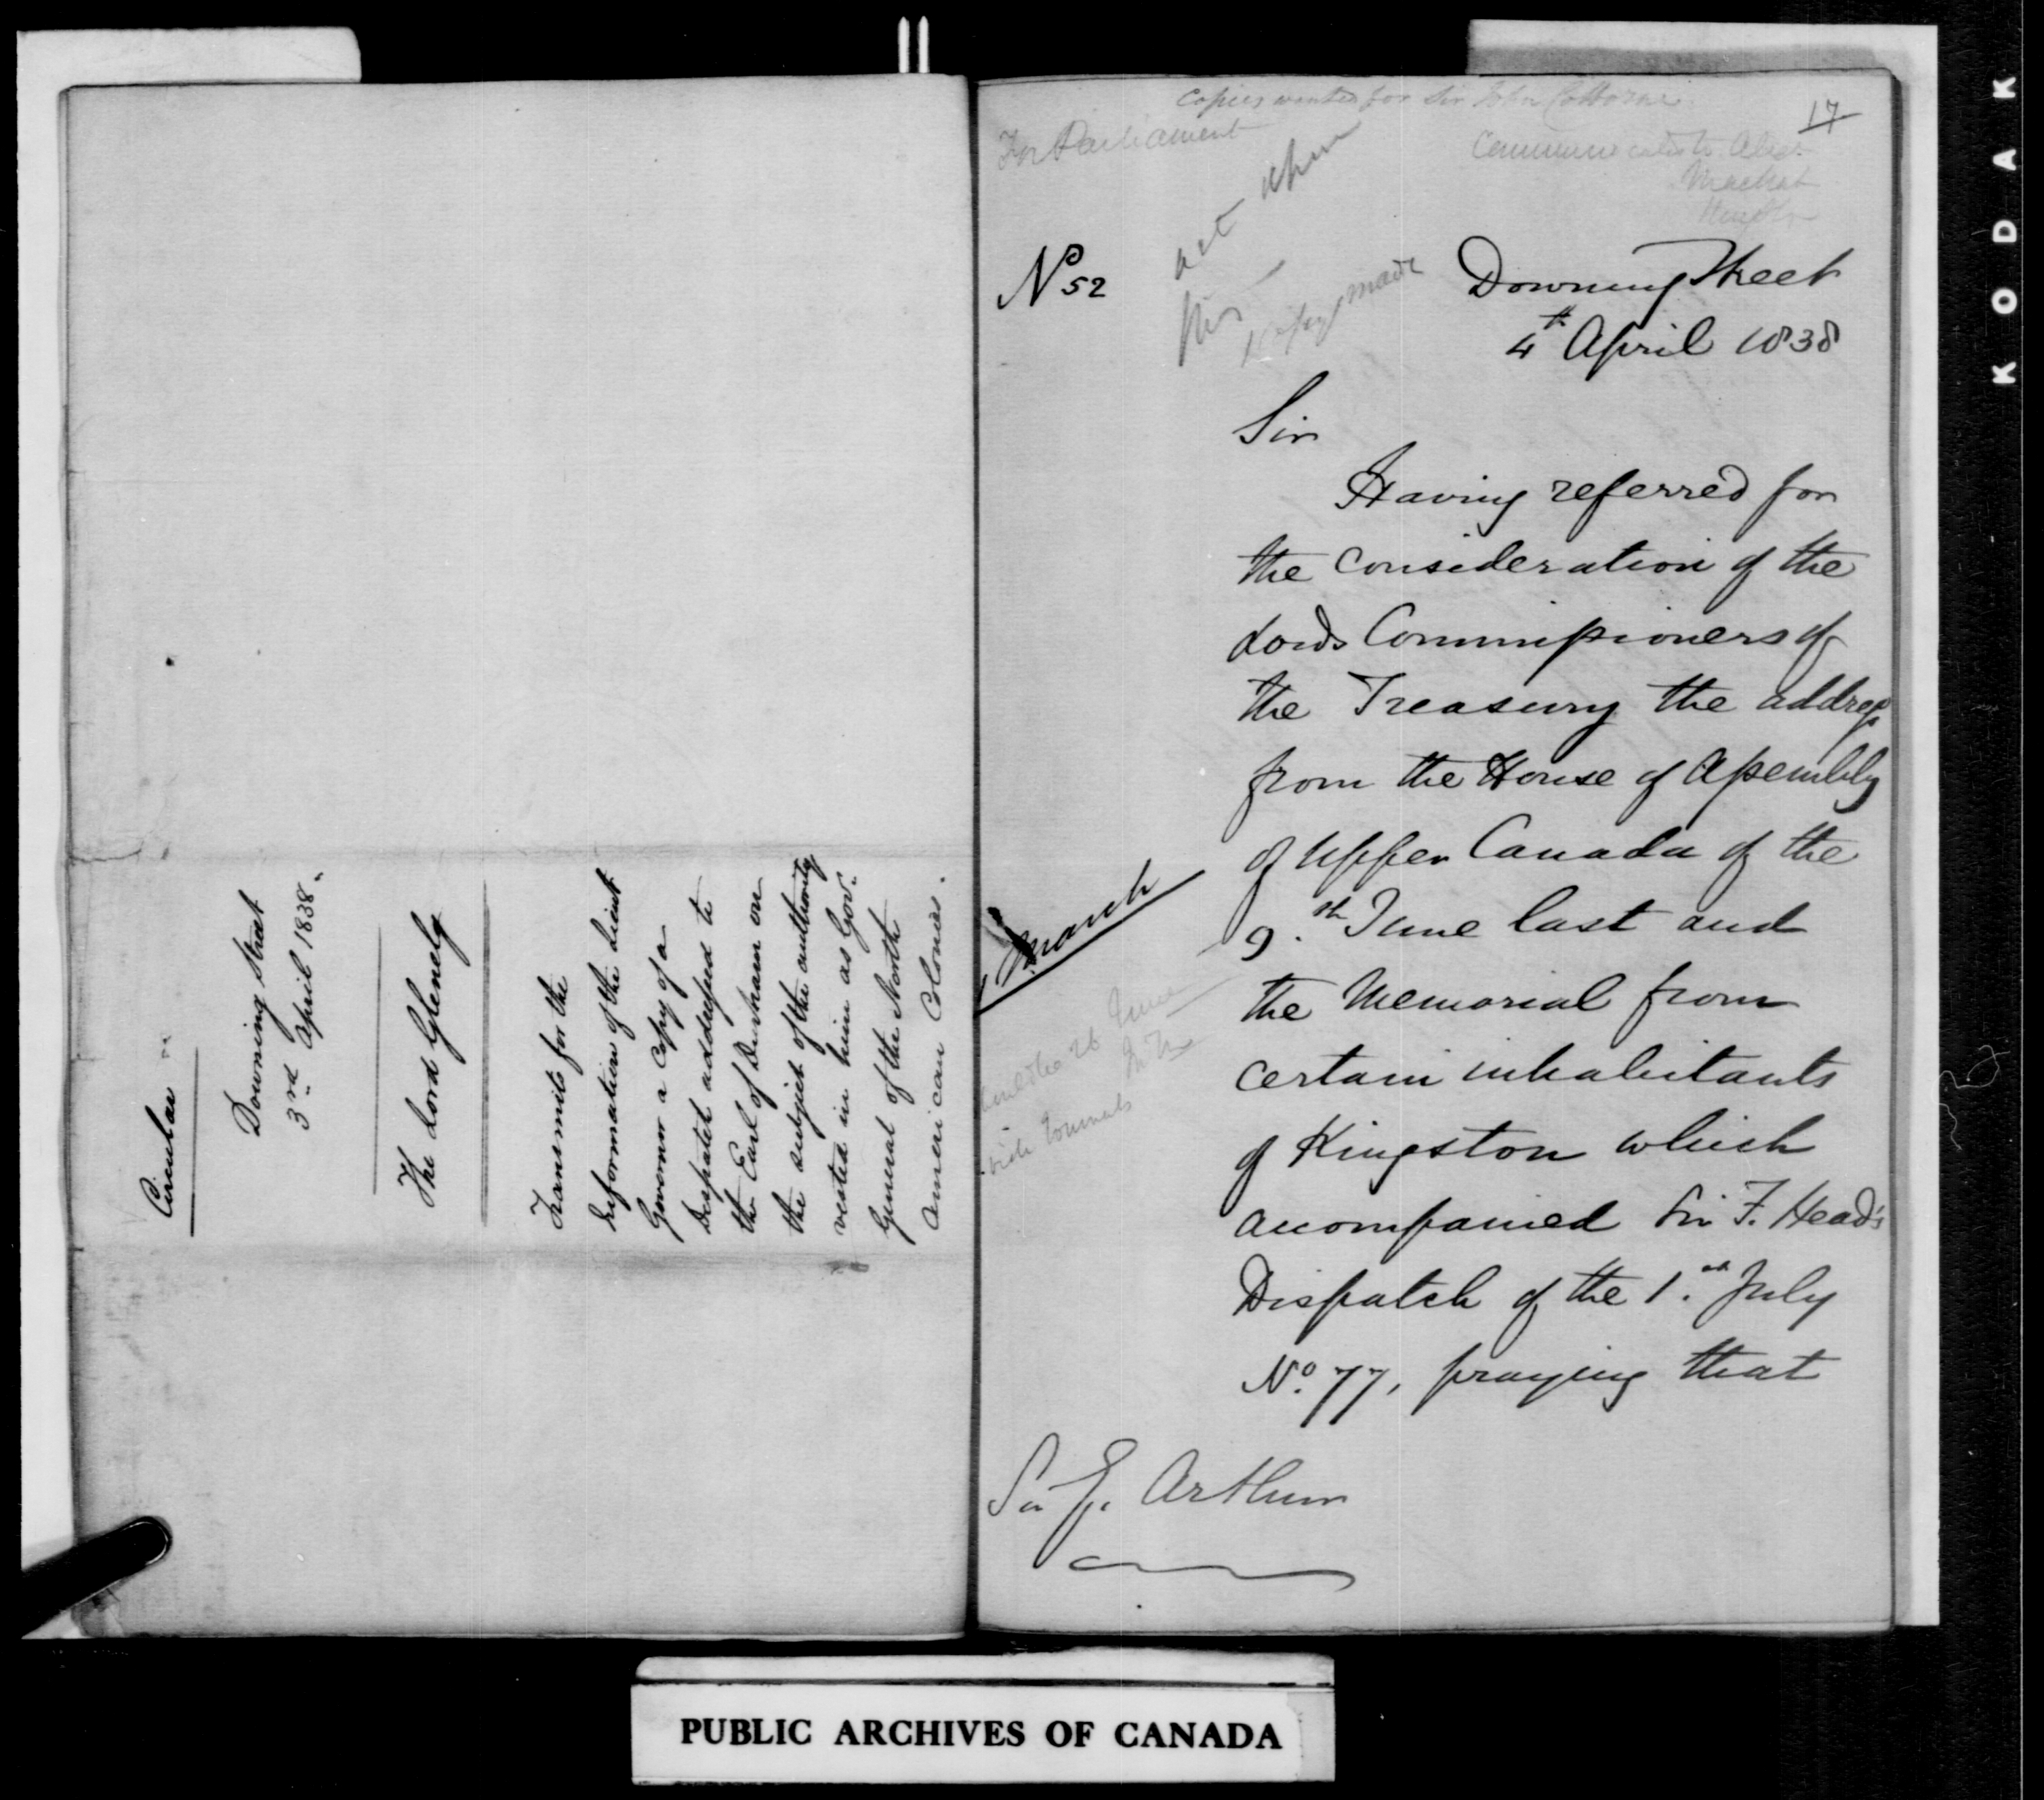 Circular
Downing Street
3rd April 1838.
The Lord Glenelg
Transmits for the
Information of the Lieut
Governor a Copy of a
Despatch addressed to
the Earl of Durham on
the subject of the authority
vested in him as Gov.
General of the North
American Colonies.
Copies wanted for Sir John Colborne
For Parliament
17
No 52
act upon
this
Copy made
Downing Street
4th April 1838
Sir
Having referred for
the consideration of the
Lords Commissioners of
the Treasury the address
from the House of Assembly
of Upper Canada of the
9.th June last and
March
the Memorial from
certain inhabitants
of Kingston which
accompanied Sir F. Head's
Dispatch of the 1.st July
No. 77, praying that
Sir G. Arthur
PUBLIC ARCHIVES OF CANADA
KODAK